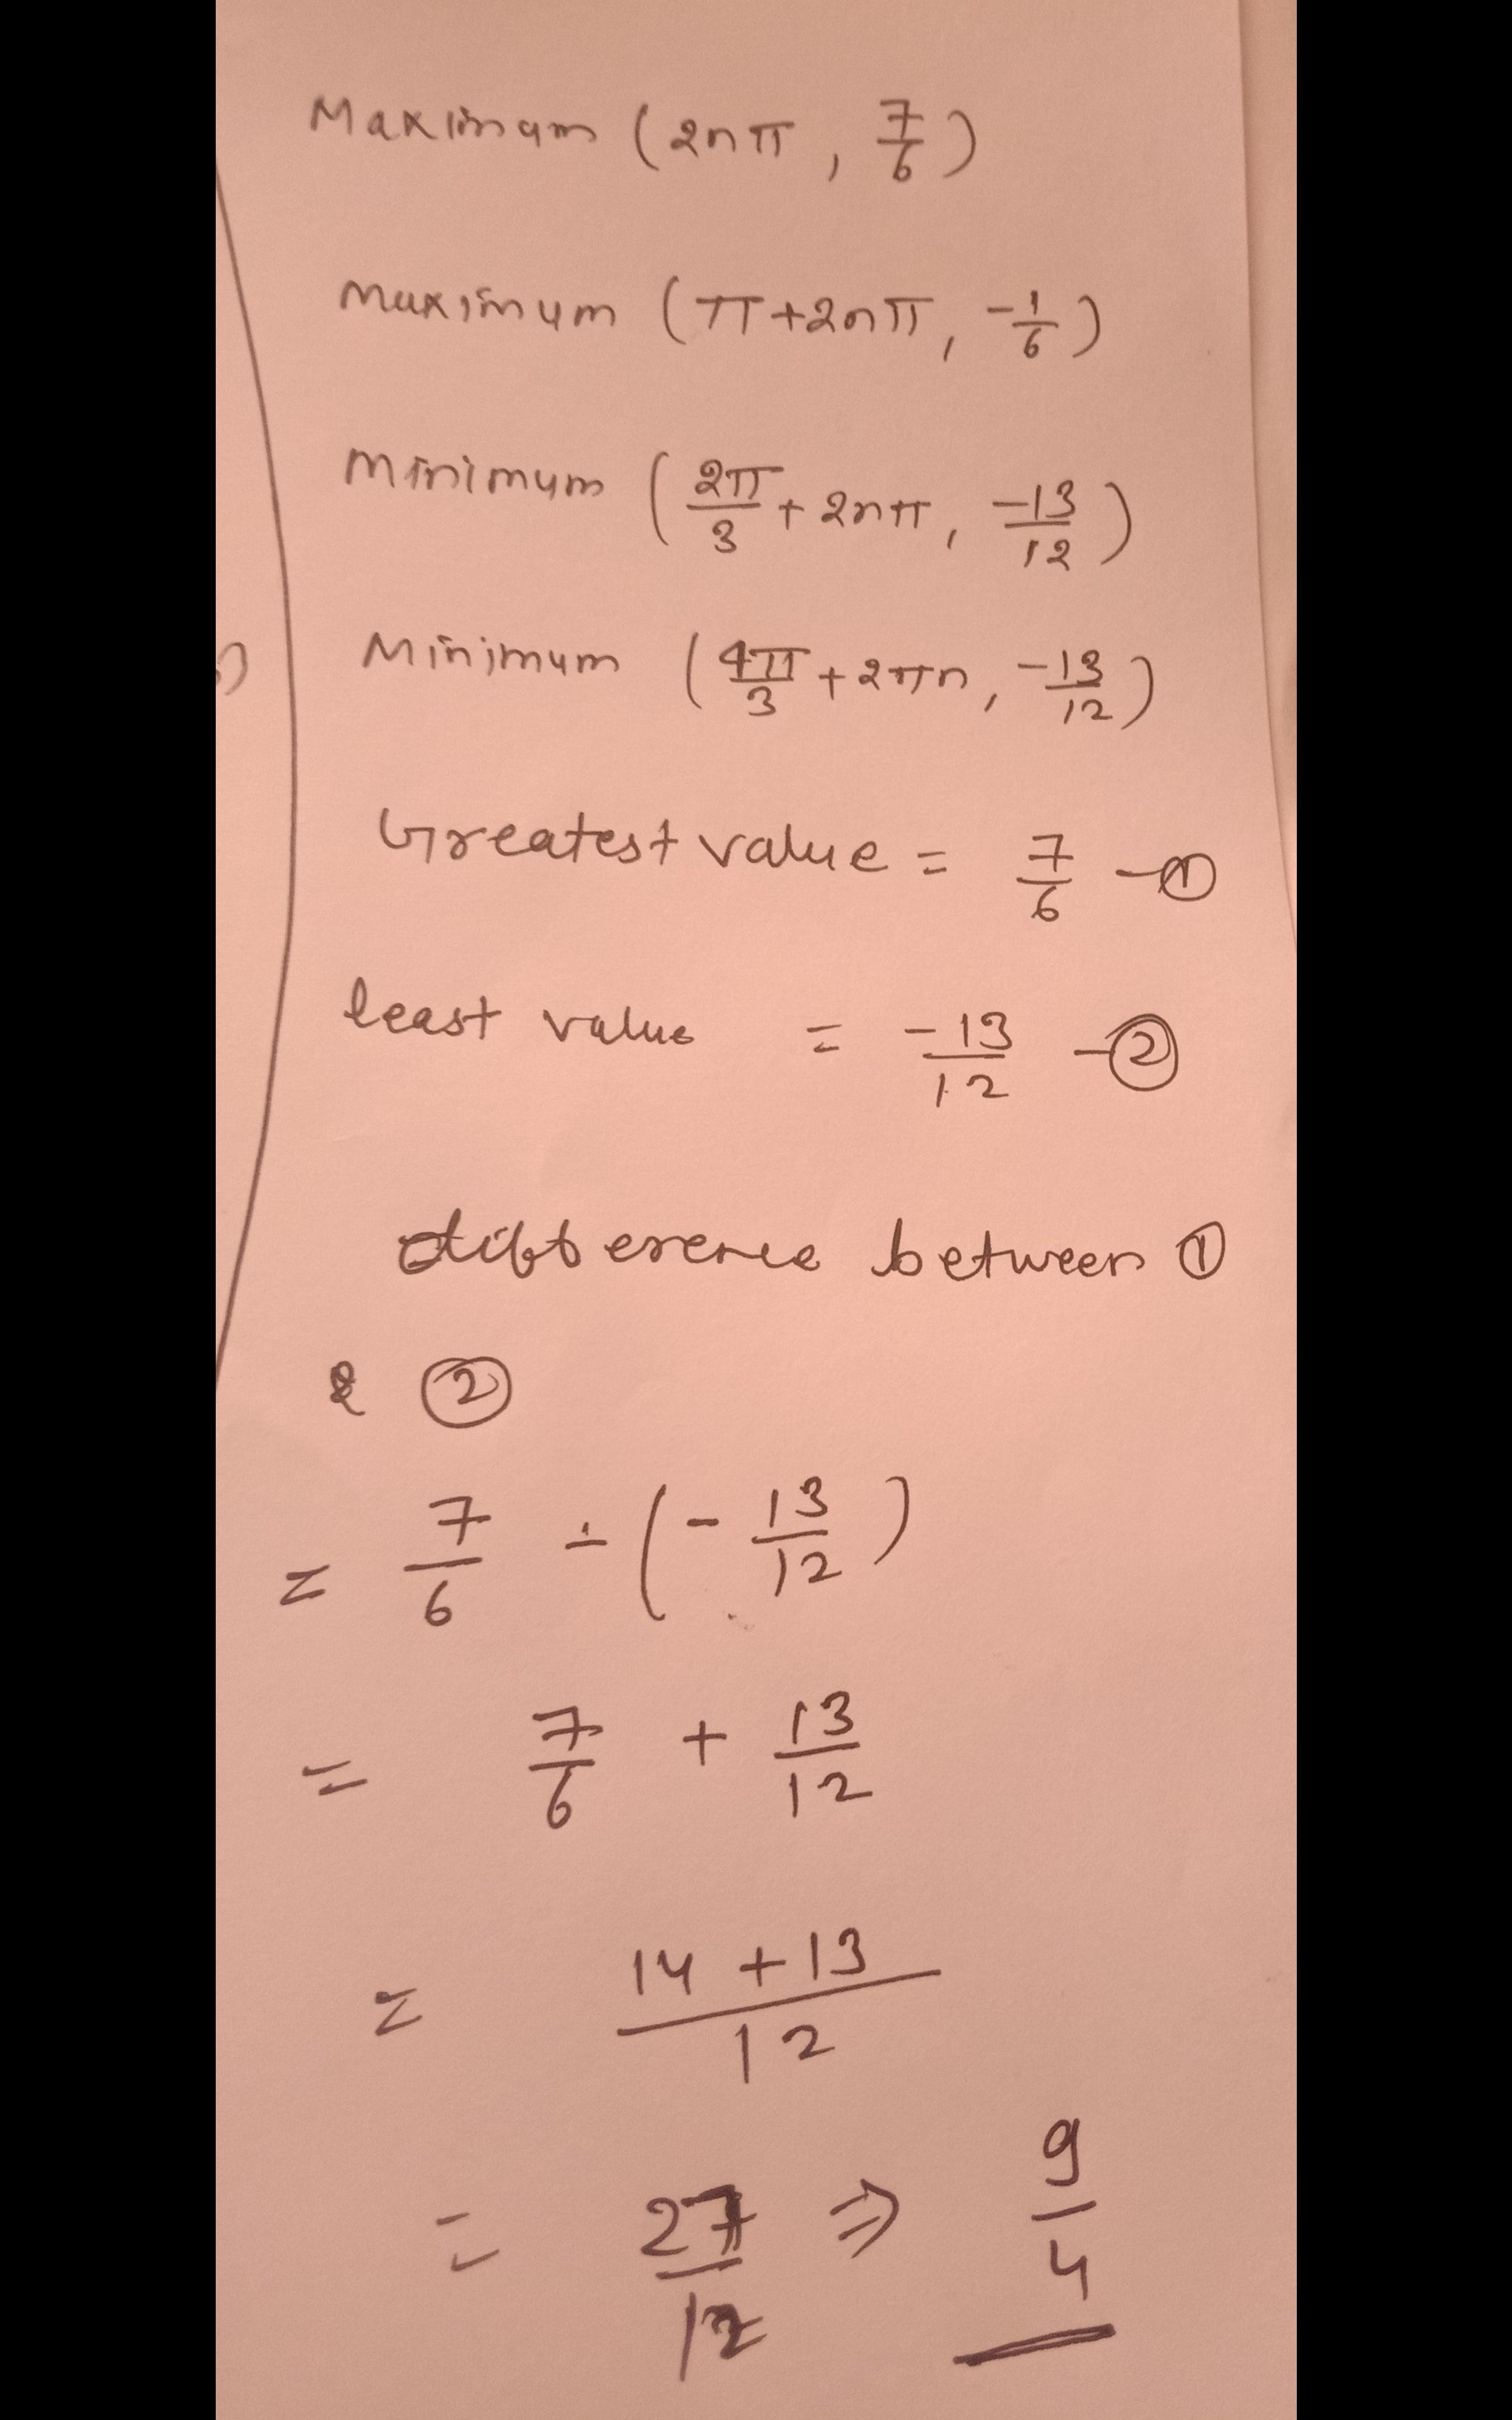 Maximum (2nπ, 7/6)
Maximum (π+2nπ, -1/6)
Minimum (2π/3 + 2nπ, -13/12)
Minimum (4π/3 + 2πn, -13/12)
Greatest value = 7/6 -①
least value = -13/12 -②
difference between ①
& ②
= 7/6 - (-13/12)
= 7/6 + 13/12
= 14+13/12
= 27/12 ⇒ 9/4